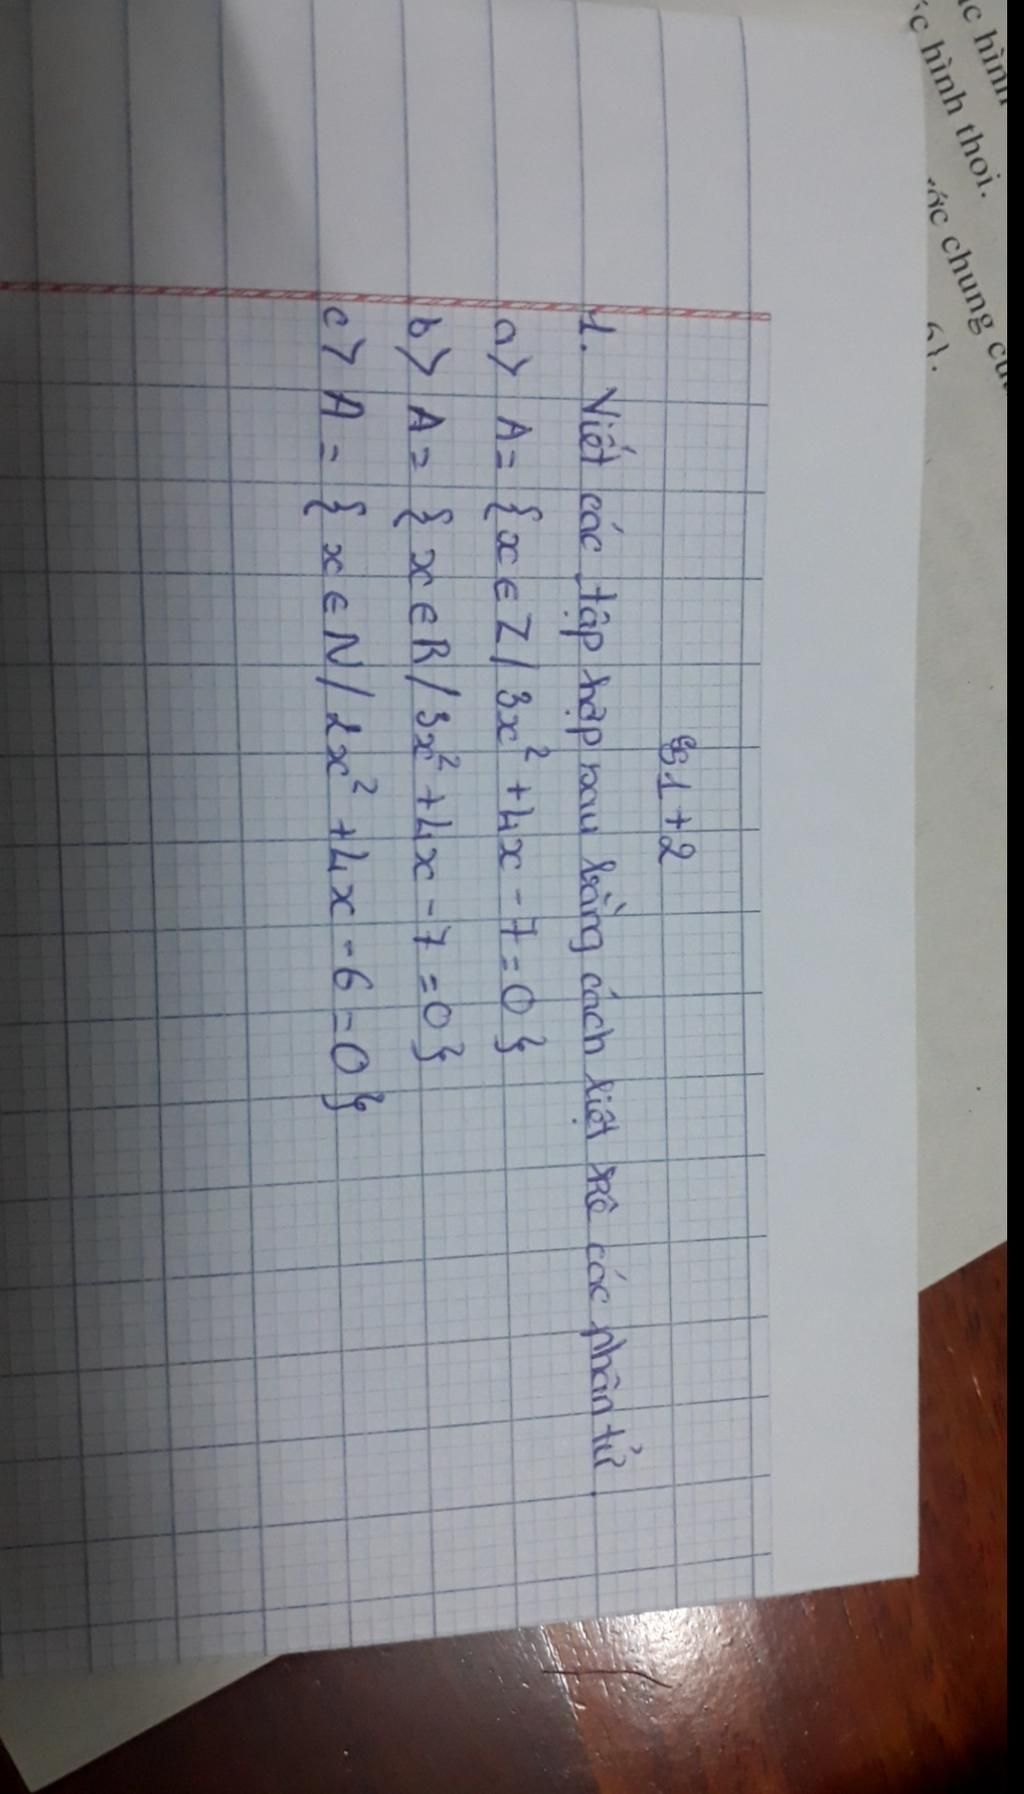 ác hình
ác hình thoi.
ước chung củ
6}.
§1+2
1. Viết các tập hợp sau bằng cách liệt kê các phần tử.
a> A = {x ∈ Z / 3x² + 4x - 7 = 0}
b> A = {x ∈ R / 3x² + 4x - 7 = 0}
c> A = {x ∈ N / 2x² + 4x - 6 = 0}